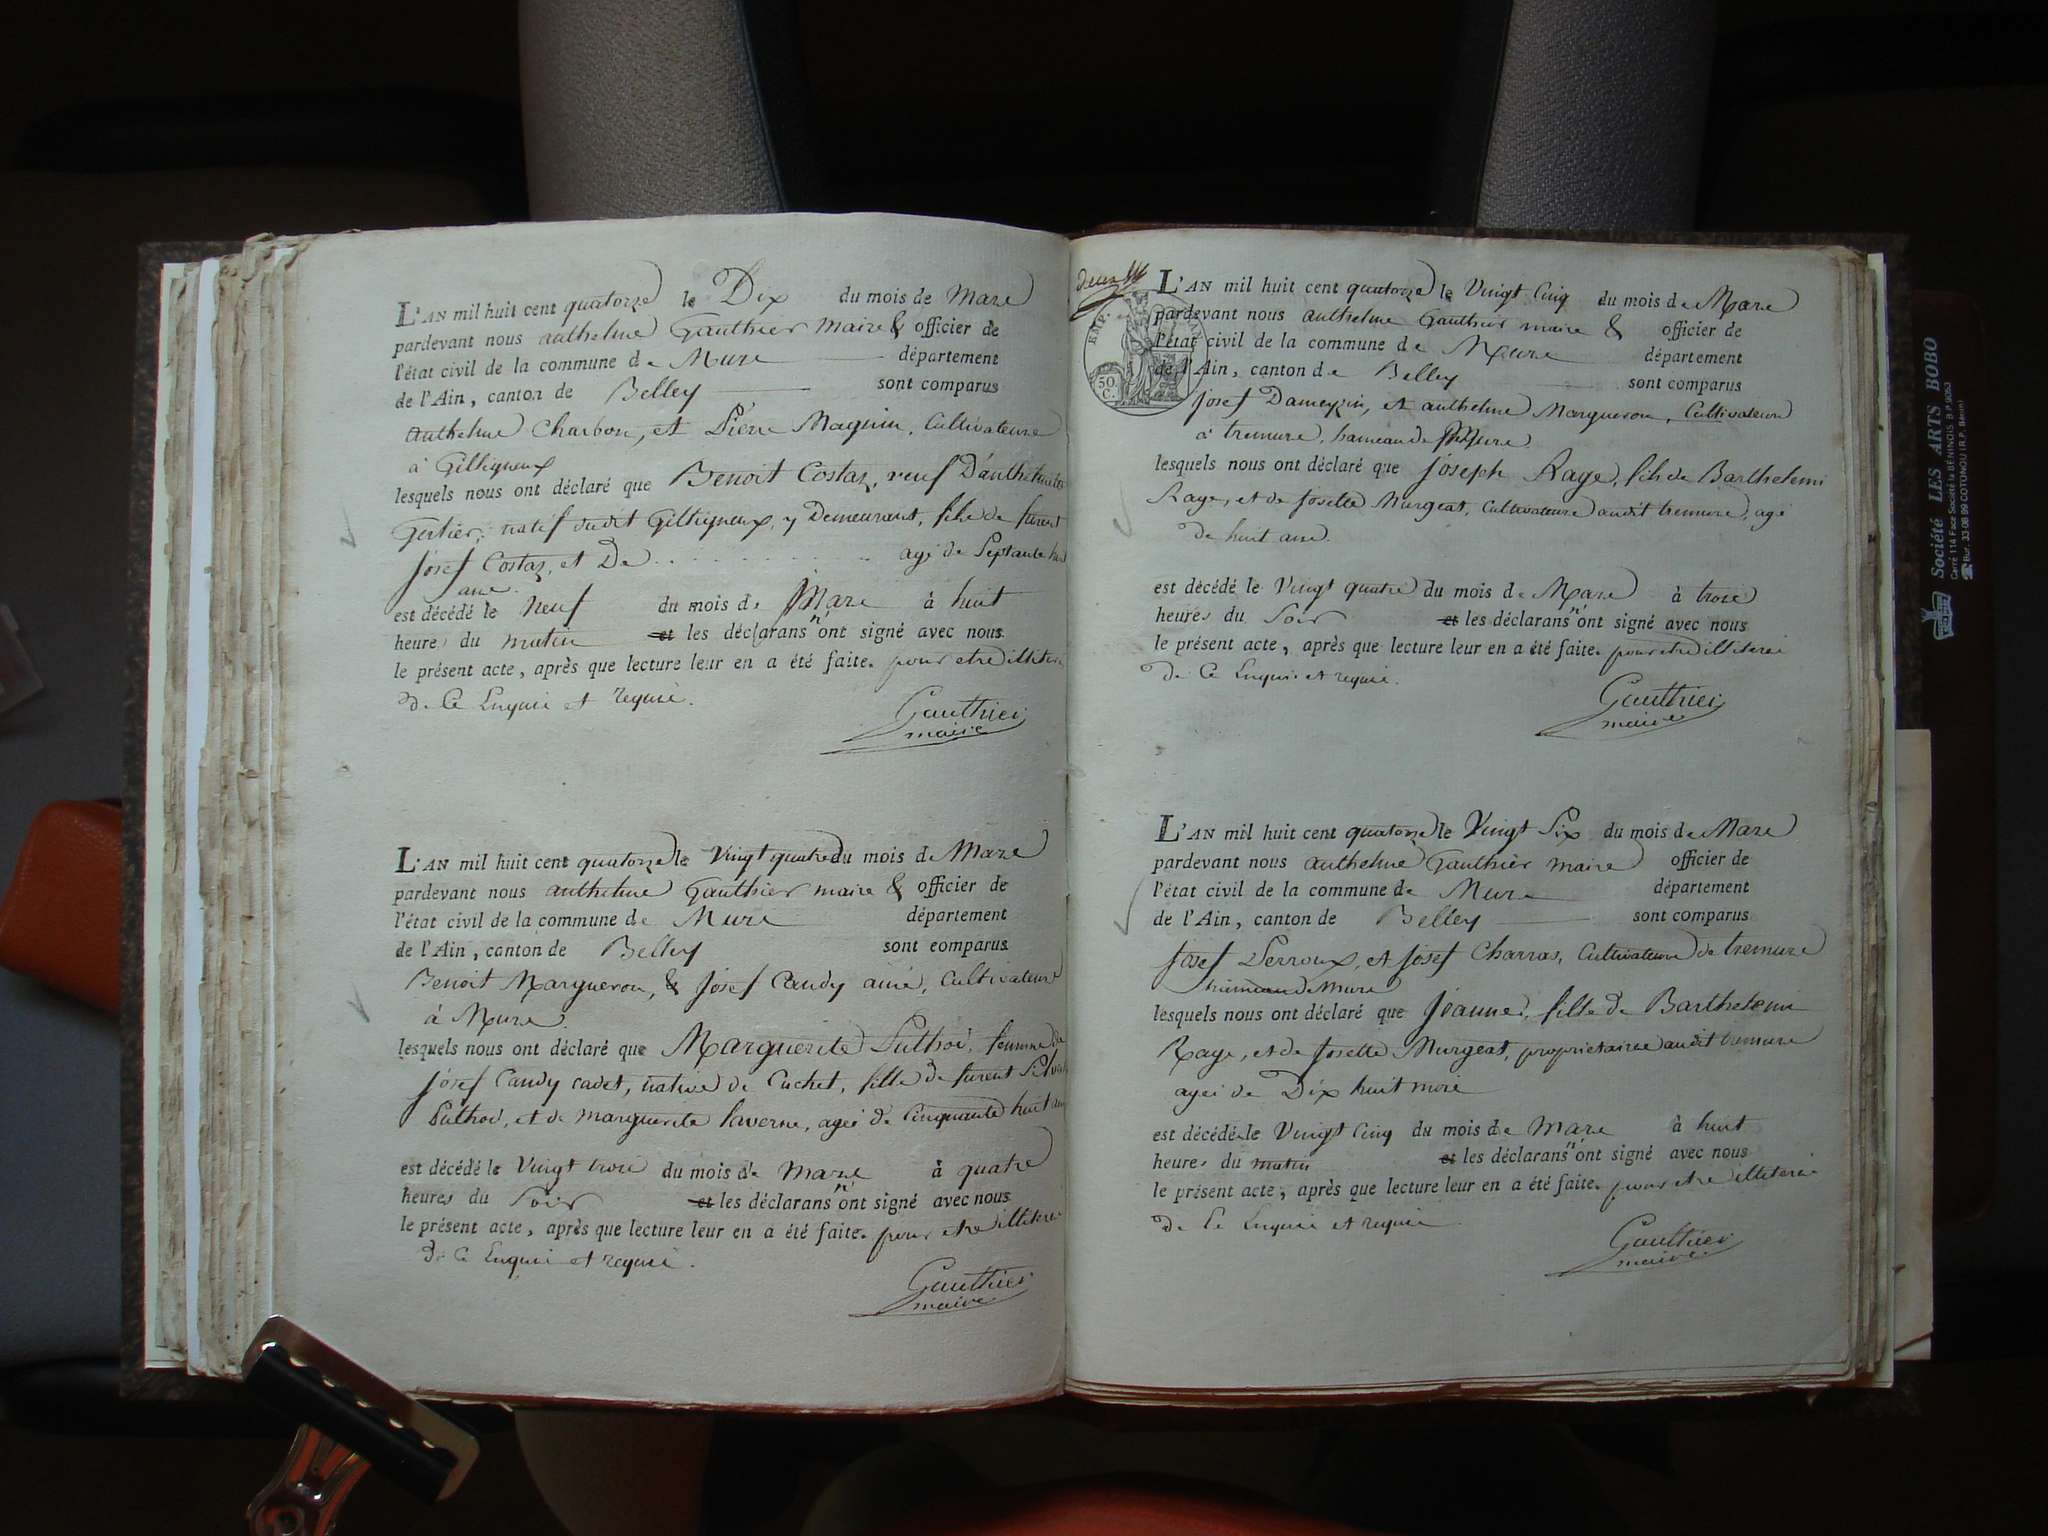 L'AN mil huit cent quatorze le Dix du mois de Mars
pardevant nous anthelme Gauthier maire & officier de
l'état civil de la commune de Mure département
de l'Ain, canton de Belley sont comparus
anthelme Charbon, et Pierre Magnin, Cultivateurs
à Gilligneux
lesquels nous ont déclaré que Benoit Costaz, veuf D'anthelme
Gertier, natif dudit Gilligneux, y Demeurant, fils de furent
Josef Costaz, et De . . . . . . . . . agé de Septante huit
ans.
est décédé le neuf du mois de Mars à huit
heures du matin et les déclarans n'ont signé avec nous
le présent acte, après que lecture leur en a été faite. pour etre illiterés
de Ce Enquis et requis.
Gauthier
maire
L'AN mil huit cent quatorze le Vingt quatre du mois de Mars
pardevant nous anthelme Gauthier maire & officier de
l'état civil de la commune de Mure département
de l'Ain, canton de Belley sont comparus
Benoit Margueron, & Josef Candy ainé, Cultivateurs
à Mure.
lesquels nous ont déclaré que Marguerite Puthod, femme de
Josef Candy cadet, native de Cuchet, fille de furent
Puthod, et de marguerite laverne, agée de Cinquante huit ans
est décédé le Vingt trois du mois de Mars à quatre
heures du Soir et les déclarans n'ont signé avec nous
le présent acte, après que lecture leur en a été faite. pour etre illiterés
de Ce Enquis et requis.
Gauthier
maire
EMP.
50
C.
L'AN mil huit cent quatorze le Vingt Cinq du mois de Mars
pardevant nous anthelme Gauthier maire & officier de
l'état civil de la commune de Mure département
de l'Ain, canton de Belley sont comparus
Josef Dameyzin, et anthelme Margueron, Cultivateurs
à tremure, hameau de Mure
lesquels nous ont déclaré que joseph Rage, fils de Barthelemi
Rage, et de Josette Murgeat, Cultivateurs audit tremure, agé
de huit ans.
est décédé le Vingt quatre du mois de Mars à trois
heures du Soir et les déclarans n'ont signé avec nous
le présent acte, après que lecture leur en a été faite. pour etre illiterés
de Ce Enquis et requis.
Gauthier
maire
L'AN mil huit cent quatorze le Vingt Six du mois de Mars
pardevant nous anthelme Gauthier maire officier de
l'état civil de la commune de Mure département
de l'Ain, canton de Belley sont comparus
Josef Perroux, et Josef Charras, Cultivateurs de tremure
hameau de Mure
lesquels nous ont déclaré que Jeanne, fille de Barthelemi
Rage, et de Josette Murgeat, proprietaires audit tremure
agée de Dix huit mois
est décédé le Vingt Cinq du mois de Mars à huit
heures du matin et les déclarans n'ont signé avec nous
le présent acte, après que lecture leur en a été faite. pour etre illiterés
de Ce Enquis et requis
Gauthier
maire
Société LES ARTS BOBO
Carré 114 Face Société la BÉNINOIS B.P. 9053
Bur. 33-08-99 COTONOU (R.P. Bénin)